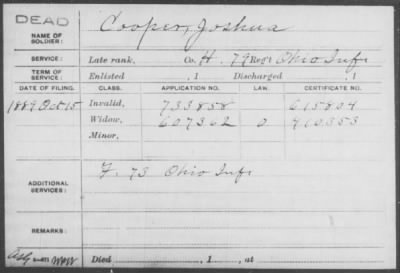 DEAD
NAME OF SOLDIER: Cooper, Joshua
SERVICE: Late rank, Co. H. 79 Reg't Ohio Inf.
TERM OF SERVICE: Enlisted , 1 Discharged , 1
DATE OF FILING. CLASS. APPLICATION NO. LAW. CERTIFICATE NO.
1889 Oct 15 Invalid, 733858 615804
Widow, 607362 0 410353
Minor,
ADDITIONAL SERVICES: F. 73 Ohio Inf.
Died , 1 , at